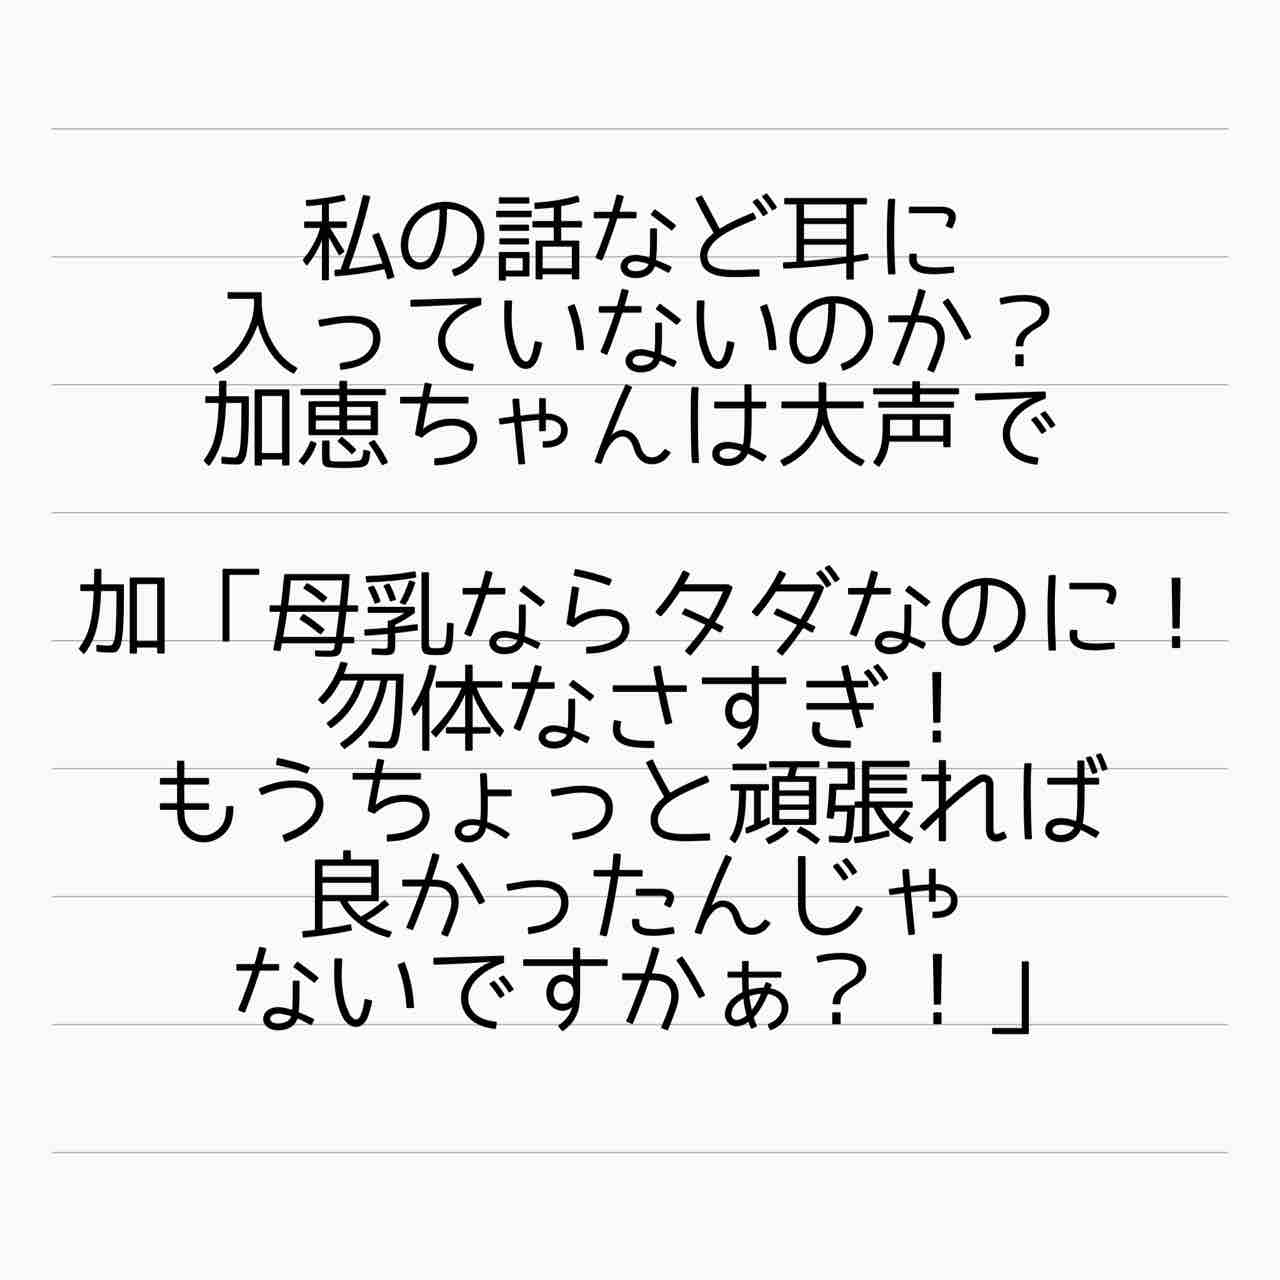 私の話など耳に
入っていないのか？
加恵ちゃんは大声で
加「母乳ならタダなのに！
勿体なさすぎ！
もうちょっと頑張れば
良かったんじゃ
ないですかぁ？！」